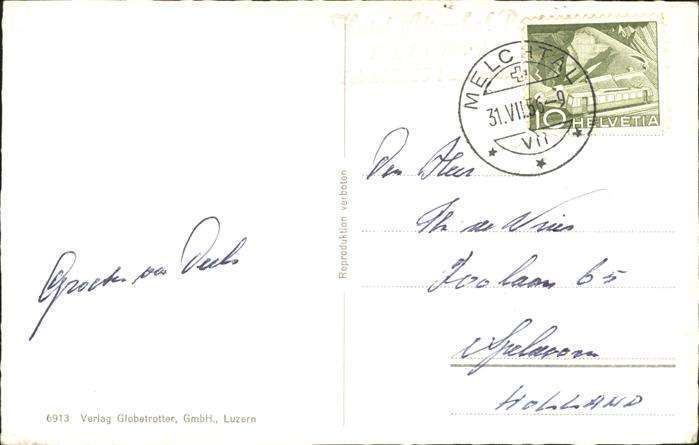 MELCHTAL
31.VII.56-9
VII
10 HELVETIA
Reproduktion verboten
Den Heer
Th. de Vries
65
HOLLAND
Groeten van
6913 Verlag Globetrotter, GmbH., Luzern